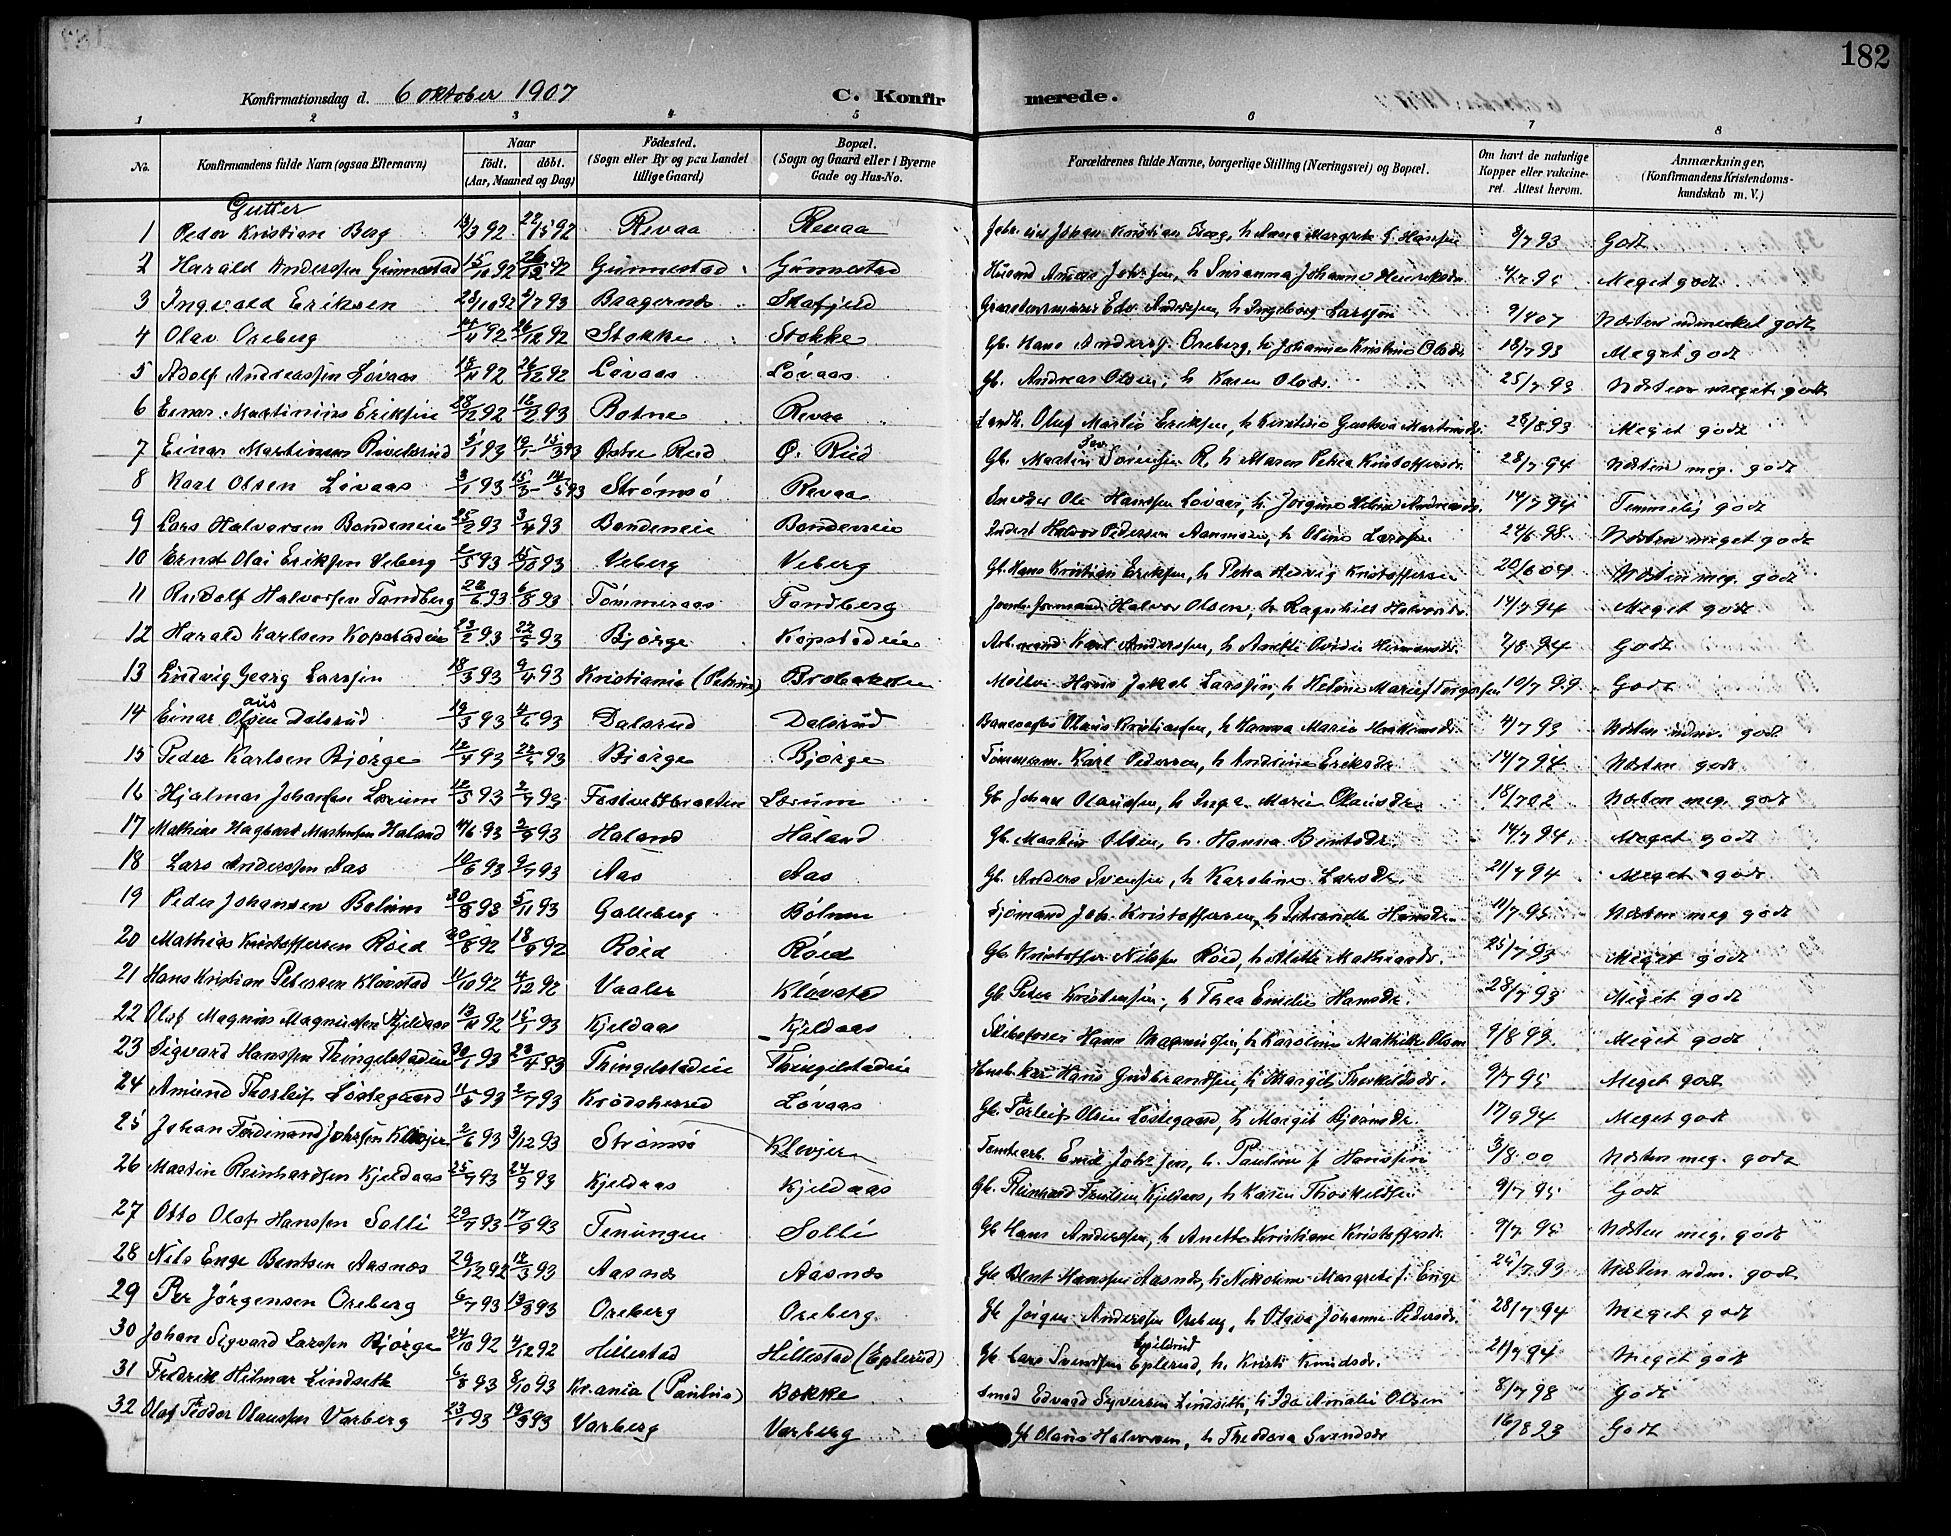 182
Konfirmationsdag d. 6 oktober 1907 C. Konfirmerede.
1 2 3 4 5 6 7 8
No. Konfirmandens fulde Navn (ogsaa Efternavn) Naar födt. döbt. (Aar, Maaned og Dag) Födested. (Sogn eller By og paa Landet tillige Gaard) Bopæl. (Sogn og Gaard eller i Byerne Gade og Hus-No. Forældrenes fulde Navne, borgerlige Stilling (Næringsvei) og Bopæl. Om havt de naturlige Kopper eller vakcineret. Attest herom. Anmærkninger. (Konfirmandens Kristendomskundskab m. V.)
Gutter
1 Peder Kristian Berg 13/3 92 22/5 92 Revaa Revaa Johan Kristian Berg, h. Anna Margrete f. Hansen 8/7 93 Godt
2 Harald Anderssen Gunnestad 15/10 92 26/12 92 Gunnestad Gunnestad h. Susanna Johanne Henriksdr. Meget godt
3 Ingvald Eriksen 28/10 92 2/7 93 Baagernes Skafjeld Edv. Anderssen, h. Ingeborg Larssøn 9/4 07 Næsten udmerket godt
4 Olav Oreberg 92 26/12 92 Stokke Stokke Gb. Hans Anderss. Oreberg, h. Johanne Kristine Olsdr. 18/7 93 Meget godt
5 Adolf Andreassen Løvaas 18/11 92 26/12 92 Løvaas Løvaas Gb. Andreas Olsen, h. Karen Olsdr. 25/7 93 Næsten meget godt
6 Einar Martinius Eriksen 28/12 92 16/2 93 Botne Revaa Oluf Martin Eriksen, h. Kristine Gustava Martinsdr. 28/8 93 Meget godt
7 Einar Martinius Rivelsrud 5/1 93 19/1 - 15/3 93 Østre Rud Ø. Rud Gb. Martin Sev. Sørensen R. h. Maren Petrea Kristoffersdr. 28/7 94 Næsten meg. godt
8 Karl Olsen Løvaas 3/1 93 15/3 - 14/5 93 Strømsø Revaa Snedker Ole Hanssen Løvaas, h. Jørgine Heline Andreasdr. 14/7 94 Temmelig godt
9 Lars Halvorsen Bondeneie 25/2 93 3/4 93 Bondeneie Bondeneie Inderst Halvor Pedersen, h. Oline Larssen 24/6 98 Næsten meget godt
10 Ernst Olai Eriksen Veberg 2/5 93 15/10 93 Veberg Veberg Gb. Hans Kristian Eriksen, h. Petra Hedvig Kristoffersen 20/6 04 Næsten meg. godt
11 Rudolf Halvorsen Tandberg 22/6 93 6/8 93 Tømmeraas Tandberg Jernb. formand Halvor Olsen, h. Ragnhild Halvorsdr. 14/7 94 Meget godt
12 Harald Karlsen Kopstadeie 23/2 93 22/5 93 Bjørge Kopstadeie Arb. mand Karl Anderssen, h. Anette Ovidie Hermansdr. 7/8 94 Godt
13 Ludvig Georg Larssen 18/3 93 9/4 93 Kristiania (Petrus) Møller Hans Jakob Larssen, h. Helene Marie f. Torgersen 10/7 99 Godt
14 Einar Olaus Dalsrud 19/3 93 4/6 93 Dalsrud Dalsrud Banevogter Olaus Kristiansen, h. Hanna Marie 4/7 93 Næsten udm. godt
15 Peder Karlsen Bjørge 12/4 93 22/5 93 Bjørge Bjørge Tømmerm. Karl Pederssen, h. Andrine Eriksdr. 14/7 94 Næsten godt
16 Hjalmar Johansen Lærum 12/5 93 2/7 93 Lærum Gb. Johan Olaussen, h. Inga Marie Olausdr. 18/7 02 Næsten meg. godt
17 Mathias Hagbart Martinsen Haland 4/6 93 93 Haland Haland Gb. Martin Olsen, h. Hanna Berntsdr. 14/7 94 Meget godt
18 Lars Anderssen Aas 10/6 93 9/7 93 Aas Aas Gb. Anders Svensen, h. Karoline Larsdr. 21/7 94 Meget godt
19 Peder Johansen Bølum 30/8 93 5/11 93 Galleberg Bølum Sjømand Joh. Kristoffersen, h. Hansdr. 11/7 95 Næsten meg godt
20 Mathias Kristoffersen Røed 20/8 92 18/9 92 Røed Røed Gb. Kristoffer Nilssen Røed, h. Alette Mathiasdr. 25/7 93 Meget godt
21 Hans Kristian Petersen Kløvstad 11/10 92 4/12 92 Vaaler Kløvstad Gb. Peter Kristensen, h. Thea Emilie Hansdr. 28/7 93 Meget godt
22 Olaf Magnus Magnussen Kjeldaas 13/11 92 15/1 93 Kjeldaas Kjeldaas Skibsfører Hans Magnussen, h. Karoline Mathilde Olsen 9/8 93 Meget godt
23 Sigvard Hanssen Thingelstadeie 30/1 93 23/4 93 Thingelstadeie Thingelstadeie Hans Gudbrandsen, h. Margit Thorkildsdr. 9/7 95 Meget godt
24 Amund Thorleif Løstegaard 11/5 93 2/7 93 Krødsherred Løvaas Gb. Thorleif Olsen Løstegaard, h. Margit Bjørnsdr. 17/9 94 Meget godt
25 Johan Ferdinand Johssen Klevjer 2/6 93 3/12 93 Strømsø Klevjer Tomtearb. Emil Johssen, h. Pauline f. Hanssen 3/8 00 Næsten meg. godt
26 Martin Reinhardsen Kjeldaas 25/7 93 24/9 93 Kjeldaas Kjeldaas Gb. Reinhard Kjeldaas, h. Karen Thorkildsen 9/7 95 Godt
27 Otto Olaf Hanssen Solli 29/7 93 17/9 93 Teningen Solli Gb. Hans Anderssen, h. Anette Kristiane Kristoffersdr. 9/7 95 Næsten meg. godt
28 Nils Enge Bentsen Aasnes 29/12 92 12/3 93 Aasnes Aasnes Gb. Bent Hanssen Aasnes, h. Nikoline Margrete f. Enge 25/7 93 Næsten udm. godt
29 Per Jørgensen Oreberg 6/7 93 13/8 93 Oreberg Oreberg Gb. Jørgen Anderssen Oreberg, h. Olava Johanne Pedersdr. 28/7 94 Meget godt
30 Johan Sigvard Larssen Bjørge 24/10 92 4/12 92 Hillestad Hillestad (Eplerud) Gb. Lars Svendsen Eplerud, h. Kristi Knudsdr. 21/7 94 Meget godt
31 Fredrik Hilmar Lindseth 6/8 93 8/10 93 Kr.ania (Paulus) Bokke Smed Edvard Syversen Lindseth, h. Ida Amalie Olsen 8/7 98 Godt
32 Olaf Teodor Olaussen Varberg 23/1 93 19/3 93 Varberg Varberg Gb. Olaus Halvorsen, h. Theodora Svendsdr 16/8 93 Godt